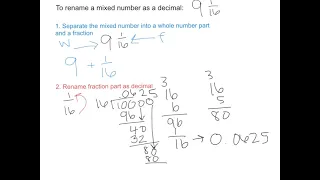 To rename a mixed number as a decimal: 9 1/16
1. Separate the mixed number into a whole number part and a fraction
W → 9 1/16 ← f
9 + 1/16
2. Rename fraction part as decimal:
1/16
.0625
16)10000
96
40
32
80
80
3
16
6
96
3
16
5
80
1/16 → 0.0625